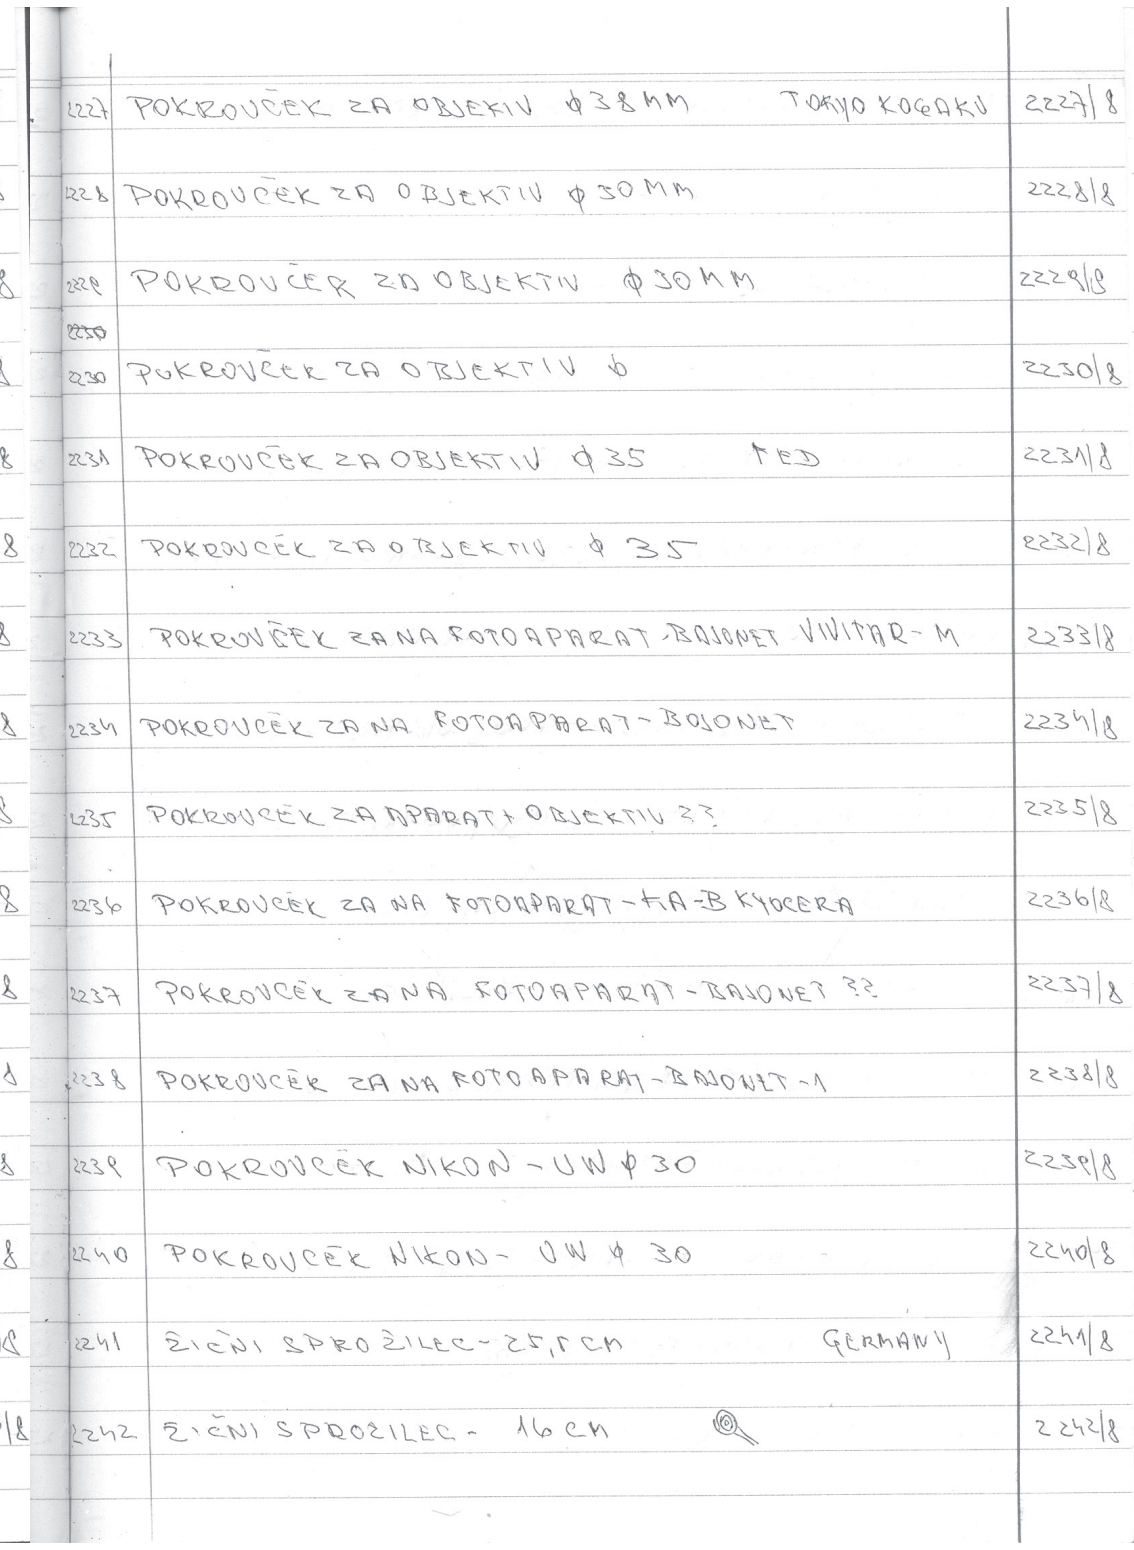 2227 POKROVČEK ZA OBJEKIV ϕ38MM TOKYO KOGAKU 2227/8
2228 POKROVČEK ZA OBJEKTIV ϕ30MM 2228/8
2229 POKROVČEK ZA OBJEKTIV ϕ30MM 2229/8
2230
2230 POKROVČEK ZA OBJEKTIV ϕ 2230/8
2231 POKROVČEK ZA OBJEKTIV ϕ35 FED 2231/8
2232 POKROVČEK ZA OBJEKTIV ϕ 35 2232/8
2233 POKROVČEK ZA NA FOTOAPARAT-BAJONET VIVITAR-M 2233/8
2234 POKROVČEK ZA NA FOTOAPARAT-BOJONET 2234/8
2235 POKROVČEK ZA APARAT+OBJEKTIV ?? 2235/8
2236 POKROVČEK ZA NA FOTOAPARAT-KA-B KYOCERA 2236/8
2237 POKROVČEK ZA NA FOTOAPARAT-BAJONET ?? 2237/8
2238 POKROVČEK ZA NA FOTOAPARAT-BAJONET-1 2238/8
2239 POKROVČEK NIKON-UW ϕ30 2239/8
2240 POKROVČEK NIKON- UW ϕ 30 2240/8
2241 ŽIČNI SPROŽILEC-25,5 CM GERMANY 2241/8
2242 ŽIČNI SPROŽILEC- 16 CM 2242/8